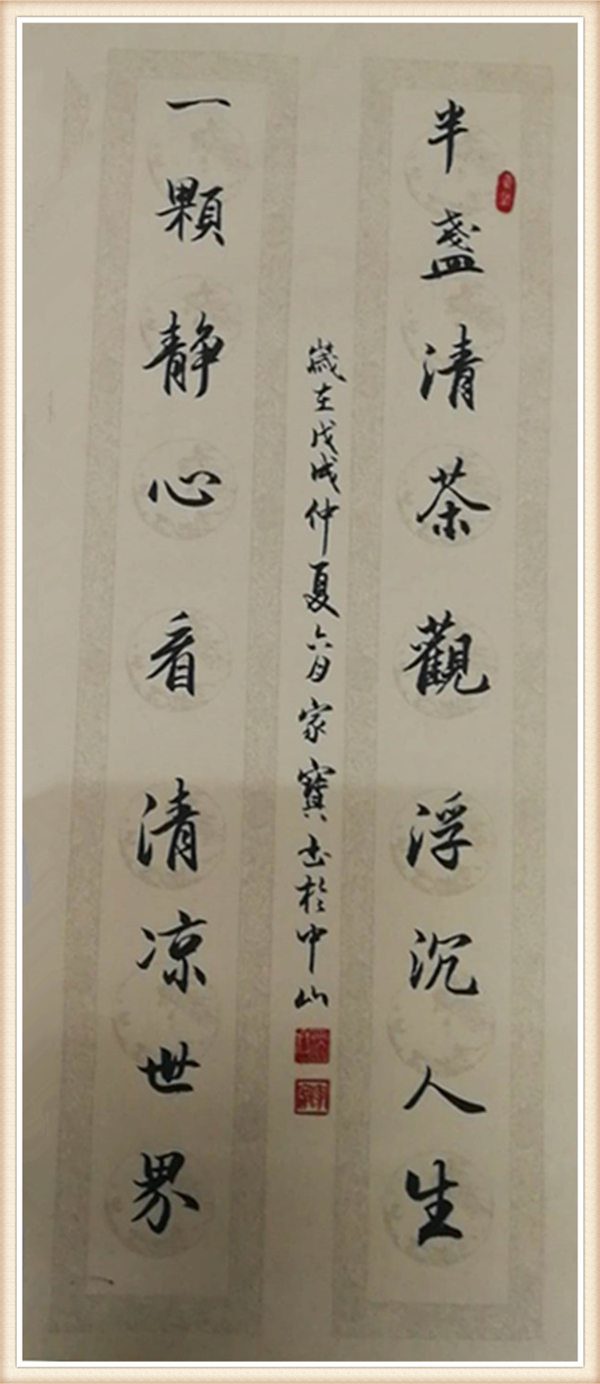 半盏清茶觀浮沉人生
一顆静心看清凉世界
歲在戊戌仲夏六月家寶书於中山